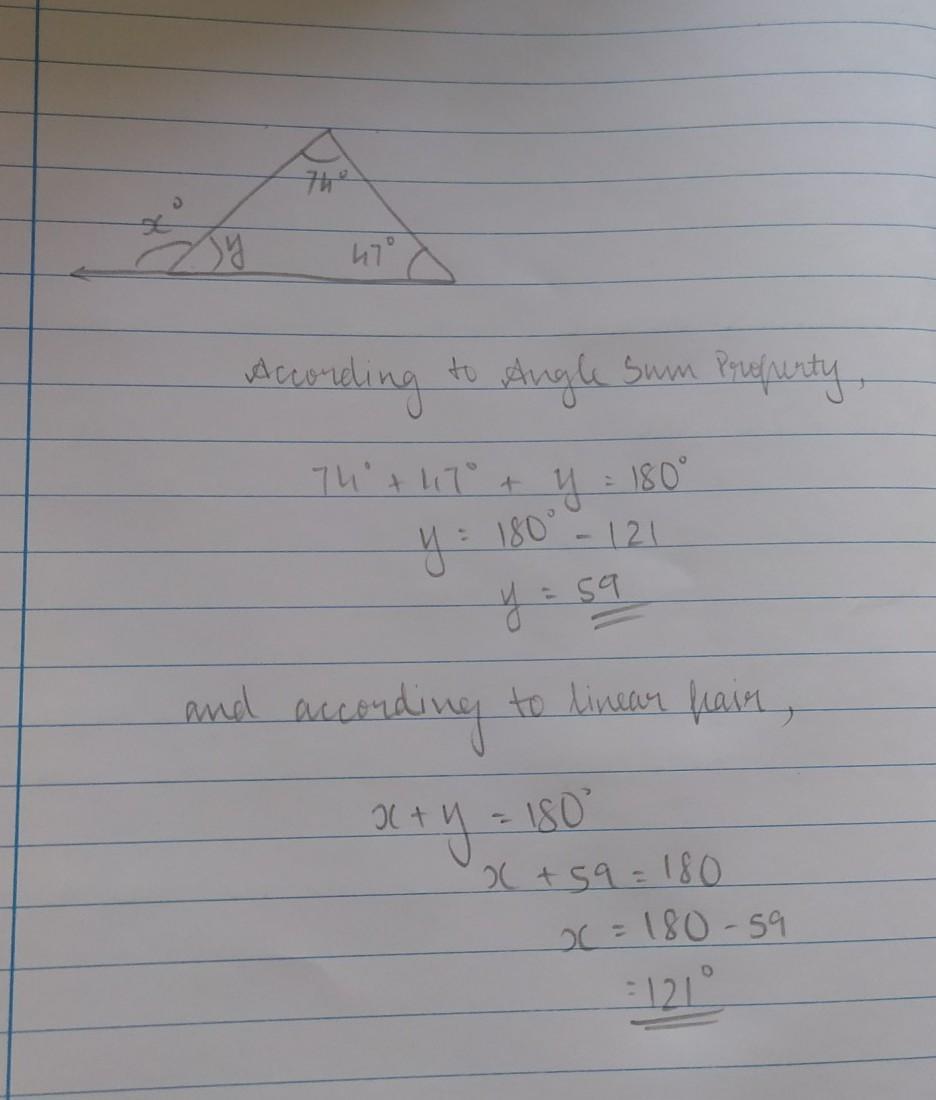 74°
x°
y
47°
According to Angle Sum Property,
74° + 47° + y = 180°
y = 180° - 121
y = 59
and according to linear pair,
x + y = 180°
x + 59 = 180
x = 180 - 59
= 121°